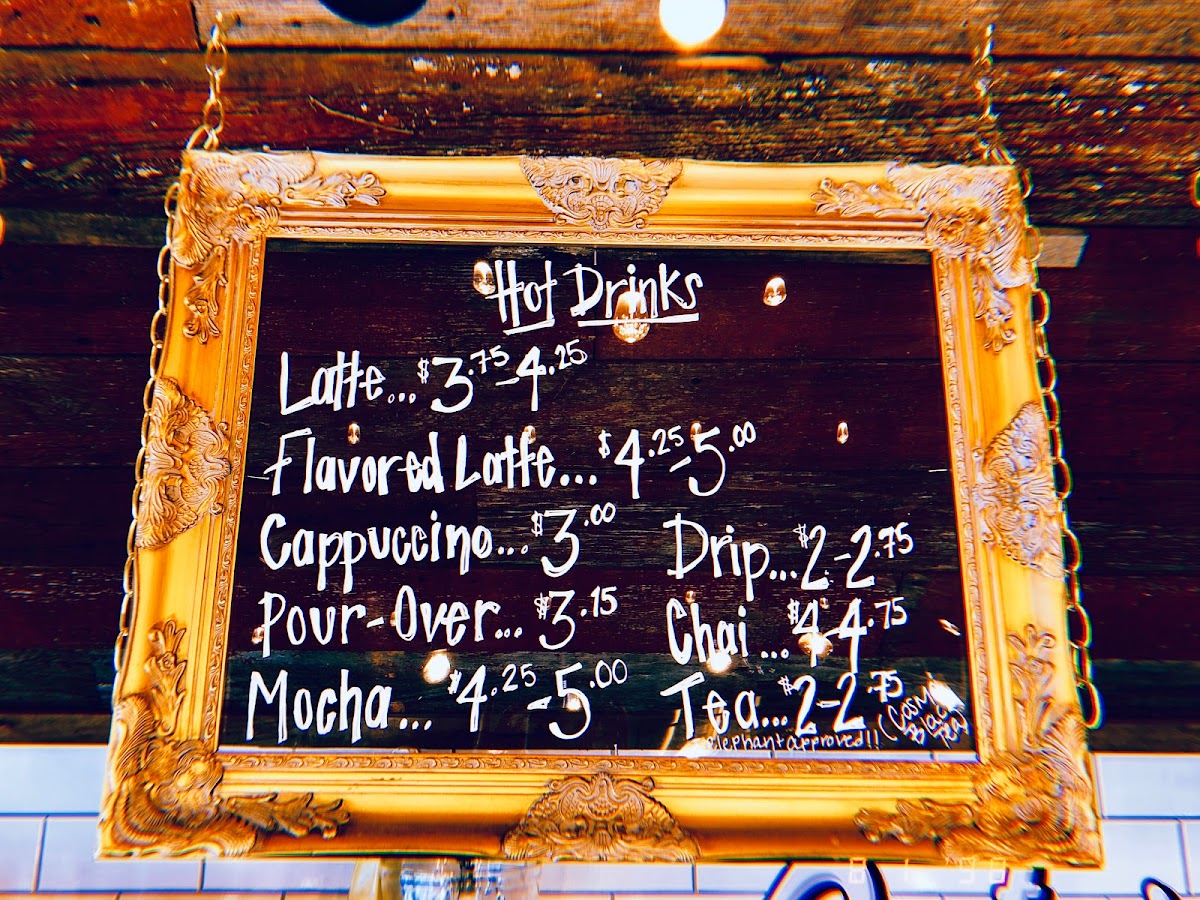 Hot Drinks
Latte...$3.75-4.25
Flavored Latte...$4.25-5.00
Cappuccino...$3.00
Pour-Over...$3.15
Mocha...$4.25-5.00
Drip...$2-2.75
Chai...$4-4.75
Tea...$2-2.75
elephant approved!!
Black
Tea)